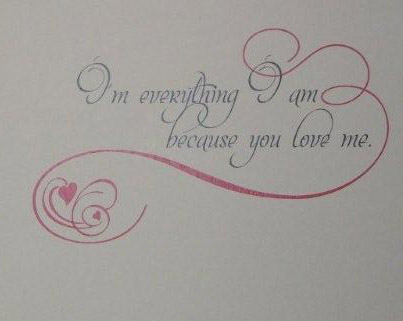 I'm everything I am
because you love me.